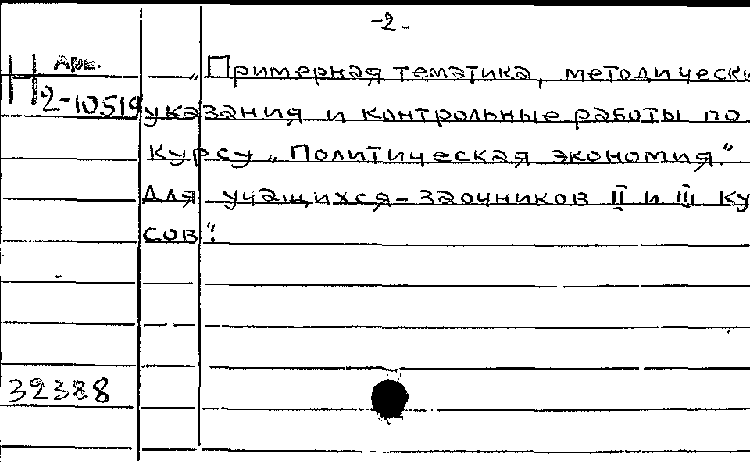 -2-
Арх.
„Примерная тематика, методически
Н 2-10519
указания и контрольные работы по
курсу „Политическая экономия."
для учащихся-заочников II и III ку
сов".
32388